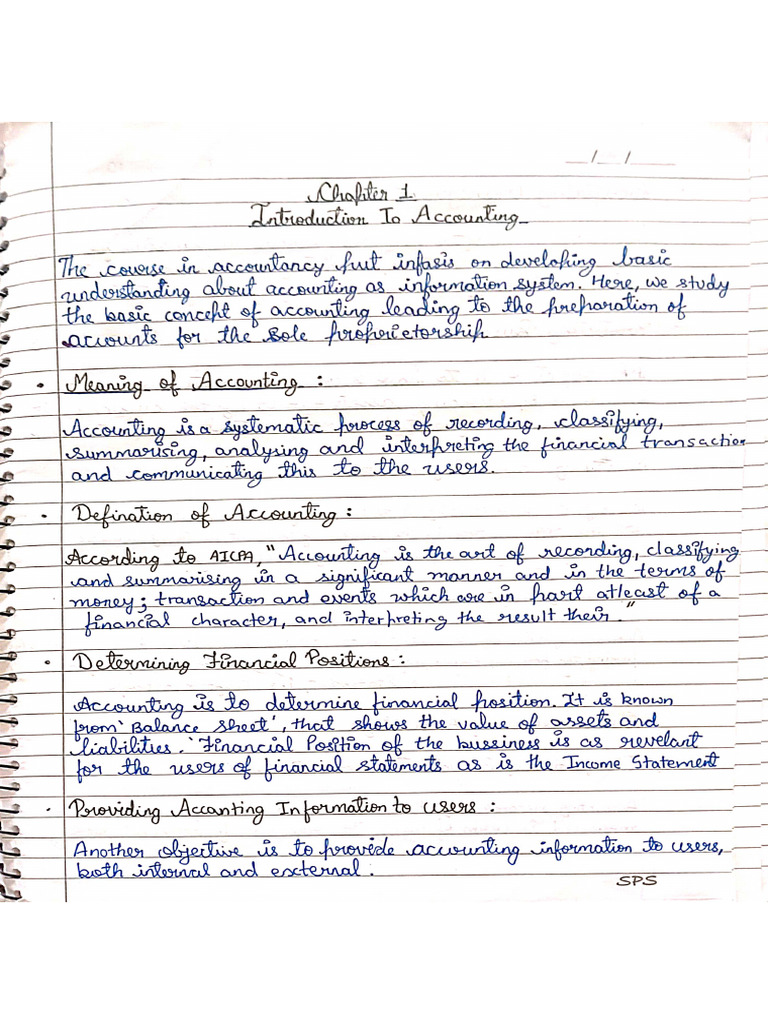 __/__/____
Chapter 1
Introduction To Accounting
The course in accountancy put infasis on developing basic
understanding about accounting as information system. Here, we study
the basic concept of accounting leading to the preparation of
accounts for the sole proprietorship
• Meaning of Accounting :
Accounting is a systematic process of recording, classifying,
summarising, analysing and interpreting the financial transaction
and communicating this to the users.
• Defination of Accounting :
According to AICPA, "Accounting is the art of recording, classifying
and summarising in a significant manner and in the terms of
money; transaction and events which are in part atleast of a
financial character, and interpreting the result their."
• Determining Financial Positions :
Accounting is to determine financial position. It is known
from 'Balance Sheet', that shows the value of assets and
liabilities. 'Financial Position of the bussiness is as revelant
for the users of financial statements as is the Income Statement
• Providing Accanting Information to users :
Another objective is to provide accounting information to users,
both internal and external.
SPS